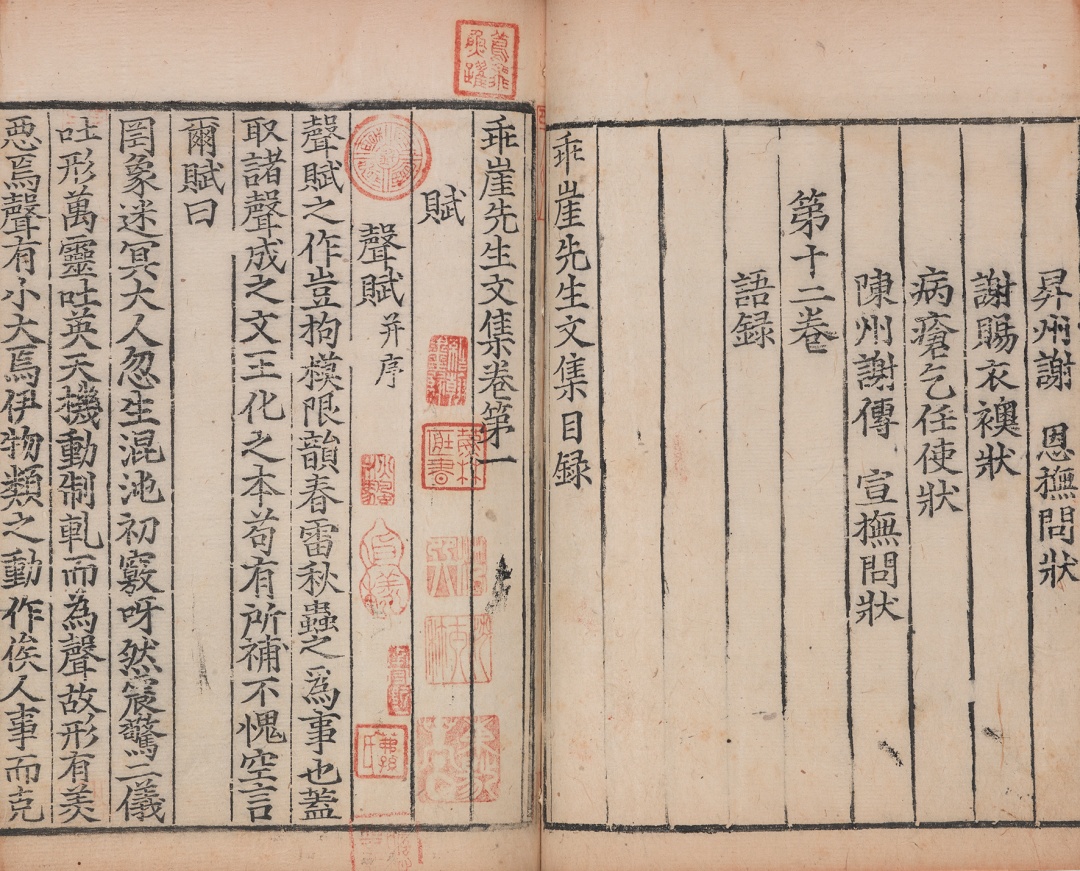 昇州謝　恩撫問狀
謝賜衣襖狀
病瘡乞任使狀
陳州謝傳　宣撫問狀
第十二卷
語録
乖崖先生文集目録
乖崖先生文集卷第一
賦
聲賦并序
聲賦之作豈拘模限韻春雷秋蟲之爲事也蓋
取諸聲成之文王化之本苟有所補不愧空言
爾賦曰
罔象迷冥大人忽生混沌初竅呀然震驚二儀
吐形萬靈吐英天機動制軋而為聲故形有美
惡焉聲有小大焉伊物類之動作俟人事而克